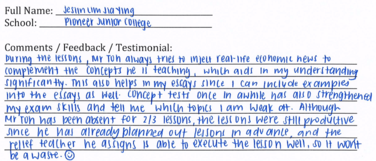 Full Name: Jeslin Lim Jia Ying
School: Pioneer Junior College
Comments / Feedback / Testimonial:
During the lessons, Mr Toh always tries to inject real-life economic news to
complement the concepts he is teaching, which aids in my understanding
significantly. This also helps in my essays since I can include examples
into the essays as well. Concept tests once in awhile has also strengthened
my exam skills and tell me which topics I am weak at. Although
Mr Toh has been absent for 2/3 lessons, the lessons were still productive
since he has already planned out lessons in advance, and the
relief teacher he assigns is able to execute the lesson well, so it won't
be a waste. ☺